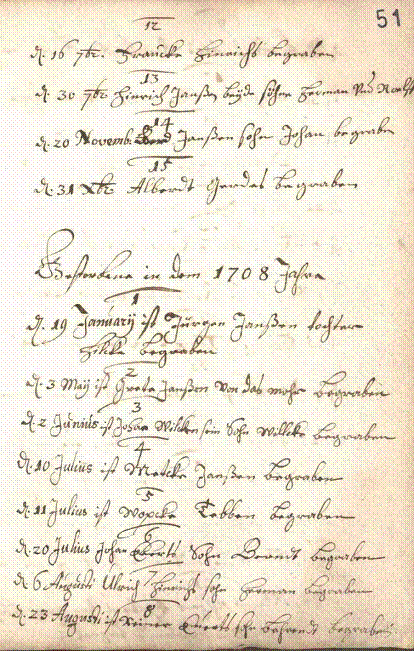 51
12
d. 16 7br. Fraucke Hinrichs begraben
13
d. 30 7br Hinrich Janßen beyde söhne Herman und Roelf
14
d. 20 Novemb. Janßen sohn Johan begraben
15
d. 31 Xbr Alberdt Gerdes begraben
Gestorbene in dem 1708 Jahre
1
d. 19 January ist Jürgen Janßen tochter
Hilke begraben
2
d. 3 Maij ist Grete Janßen von das mohr begraben
3
d. 2 Junius ist Johan Wilcken sein Sohn Willcke begraben
4
d. 10 Julius ist Metcke Janßen begraben
5
d. 11 Julius ist Wopcke Tebben begraben
6
d. 20 Julius Johan Eberts Sohn Berendt begraben
7
d. 6 Augusti Ulrich Hinrichs sohn Herman begraben
8
d. 23 Augusti ist sohn Behrendt begraben